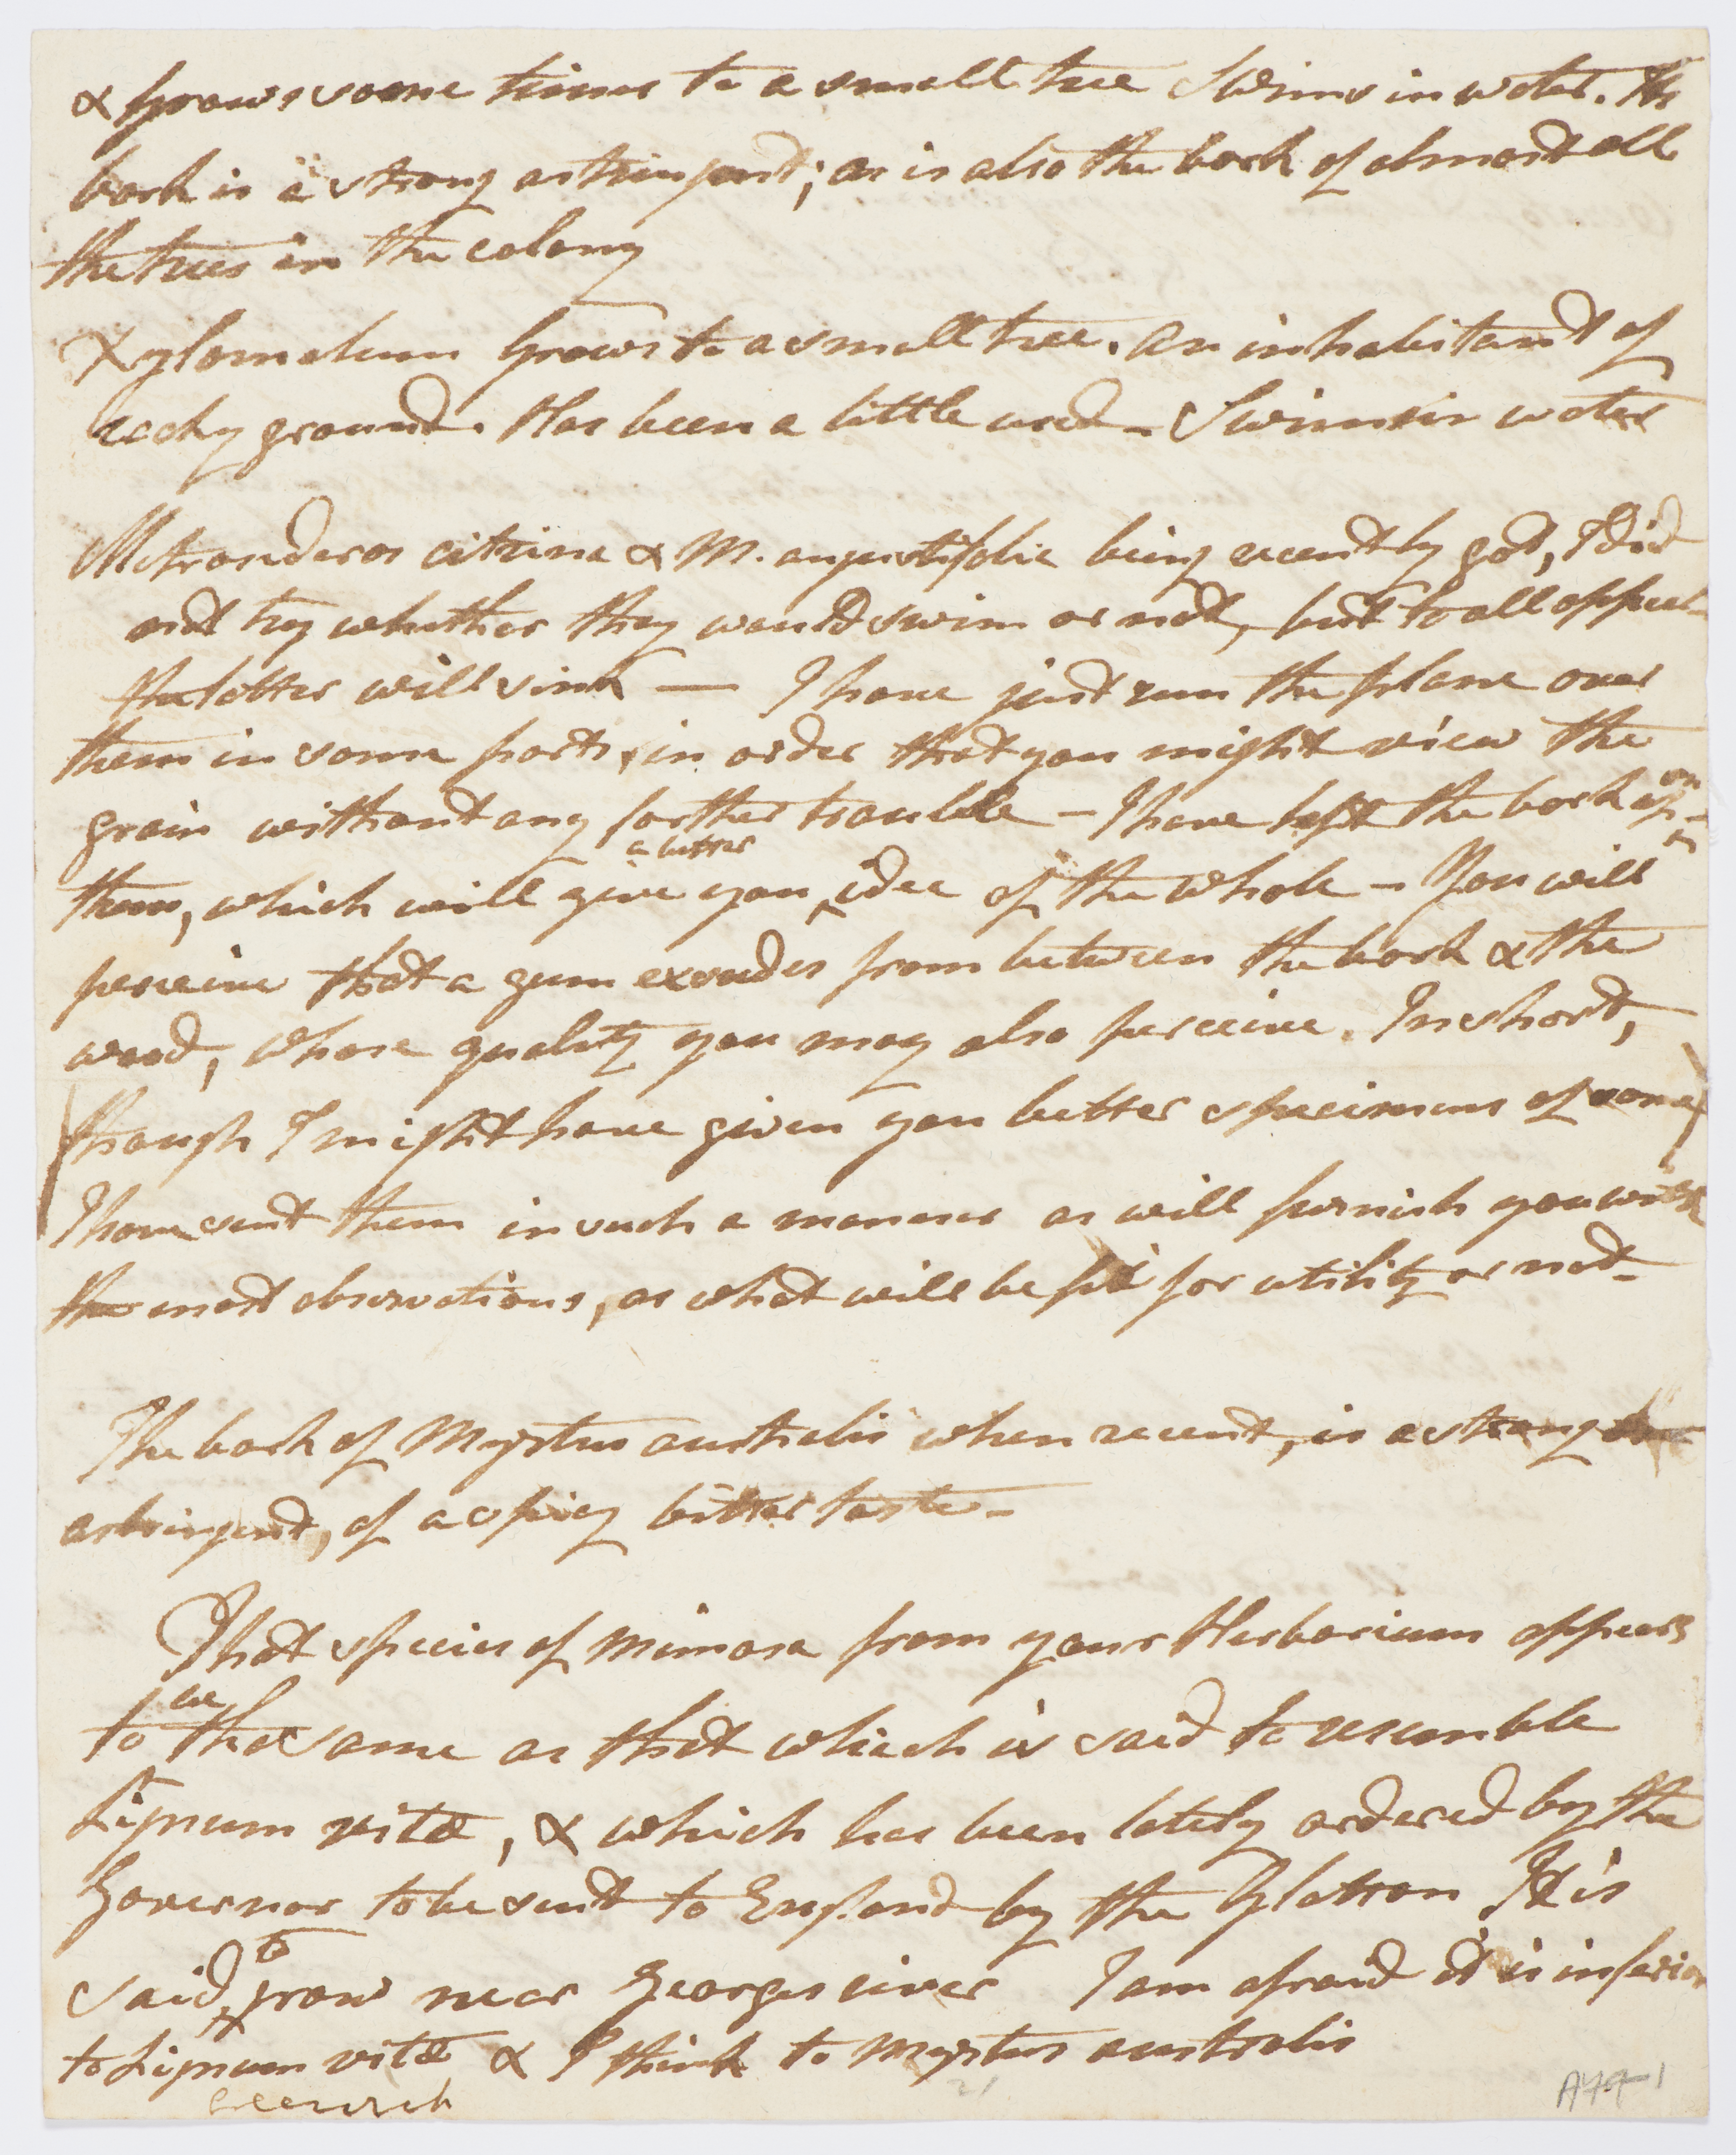 & grows some times to a small tree Swims in water. Its
bark is a strong astringent; as is also the bark of almost all
the trees in the colony
Xylomelum Grows to a small tree. An inhabitant of
rocky ground. Has been a little used - Swims in water
Metrosideros citrina & M. angustifolia being recently got, I did
not try whether they would swim or not, but to all appear-
the latter will sink — I have just run the plane over
them in some parts, in order that you might view the
grain without any farther trouble - I have left the bark on
them, which will give you a better idea of the whole - You will
perceive that a gum exsudes from between the bark & the
wood, whose quality you may also perceive. In short,
though I might have given you better specimens of some
I have sent them in such a manner as will furnish you with
the most observations, as what will be fit for utility or not -
The bark of Myrtus australis when recent, is a strong
astringent, of a spicy bitter taste -
That species of Mimosa from your Herbarium appears
to be the same as that which is said to resemble
Lignum vitæ, & which has been lately ordered by the
Governor to be sent to England by the Glatton It is
said to grow near Georges river I am afraid it is inferior
to Lignum vitæ & I think to Myrtus australis
A79-1